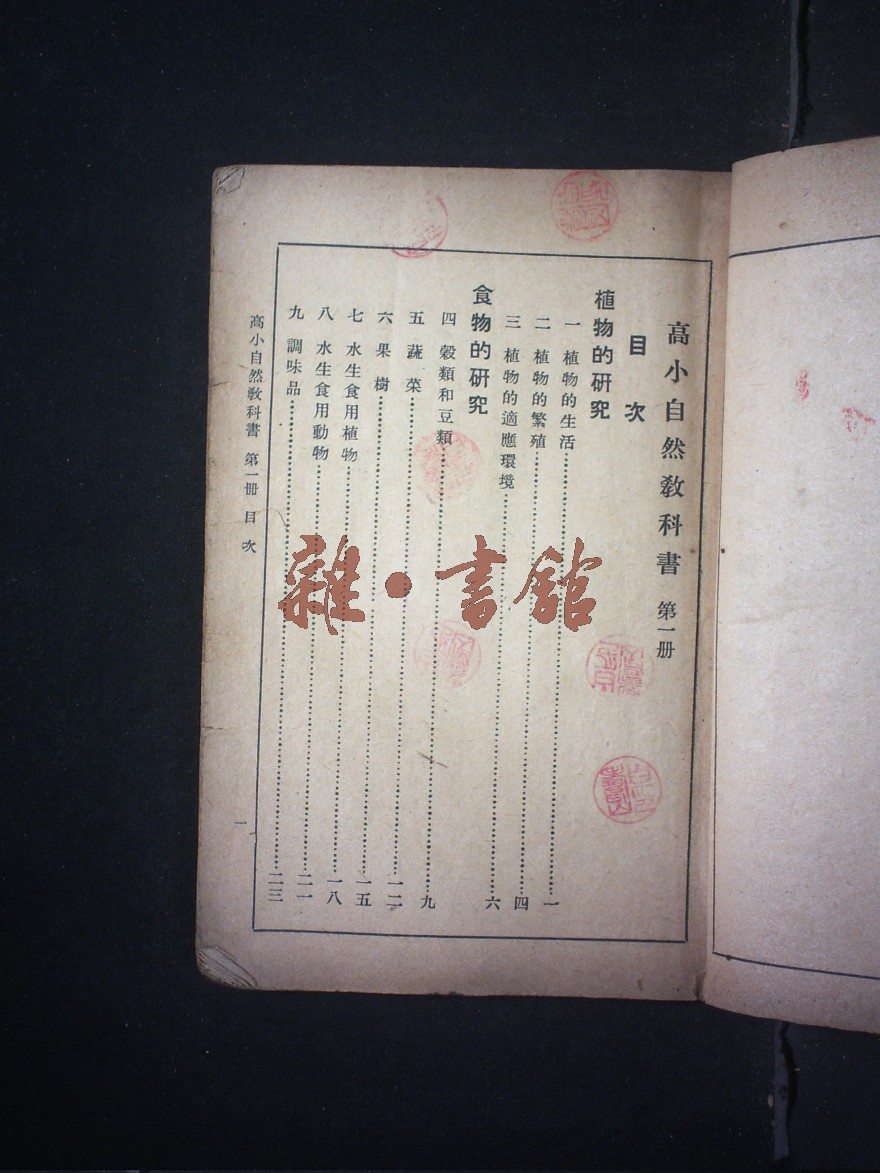 高小自然敎科書 第一册
目次
植物的研究
一 植物的生活……一
二 植物的繁殖……四
三 植物的適應環境……六
食物的研究
四 穀類和豆類……九
五 蔬菜……一二
六 果樹……一五
七 水生食用植物……一八
八 水生食用動物……二一
九 調味品……二三
高小自然敎科書 第一册 目次
一
雜·書館